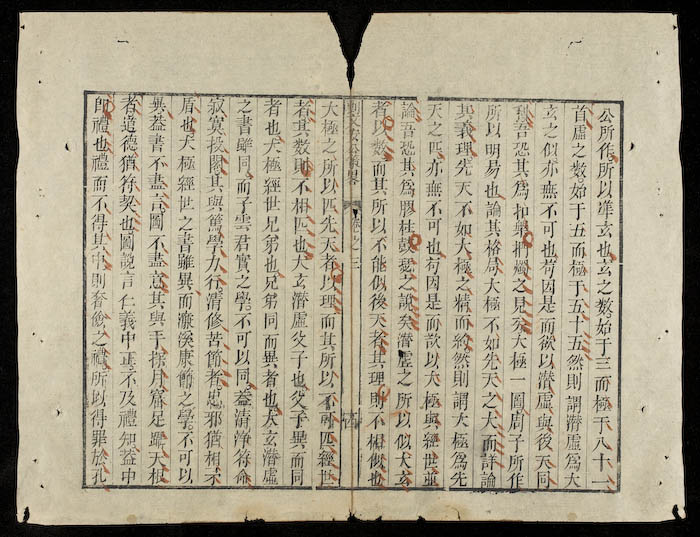 公所作所以準玄也玄之數始于三而極于八十一
首虛之數始于五而極于五十五然則謂潛虛爲大
玄之似亦無不可也苟因是而欲以潛虛與後天同
吾恐其爲扣槃捫燭之見矣大極一圖周子所作
所以明易也論其格局大極不如先天之大而詳論
其義理先天不如大極之精而約然則謂大極爲先
天之匹亦無不可也苟因是而欲以大極與經世並
論吾恐其爲膠柱鼓瑟之說矣潛虛之所以似大玄
者以數而其所以不能似後天者其理則不相似也
卷之三
大極之所以匹先天者以理而其所以不可匹經世
者其數則不相匹也大玄潛虛父子也父子異而同
者也大極經世兄弟也兄弟同而異者也大玄潛虛
之書雖同而子雲君實之學不可以同蓋清淨符命
寂寞投閣其與篤學力行清修苦節者忠邪猶相水
盾也大極經世之書雖異而濂溪康節之學不可以
異蓋書不盡言圖不盡意其與手探月窟足躡天根
者道德猶符契也圖說言仁義中正不及禮知蓋中
即禮也禮而不得其中則奢儉之禮所以得罪於孔